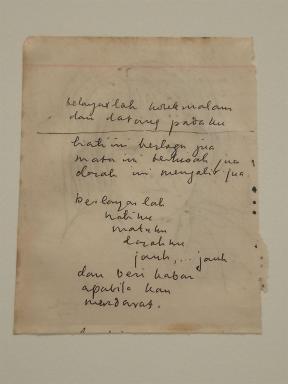 belayarlah
dan datang padaku
hati ini berlagu jua
mata ini jua
darah ini mengalir jua
berlayarlah
hatiku
mataku
darahku
jauh,... jauh
dan beri kabar
apabila kau
mendarat.